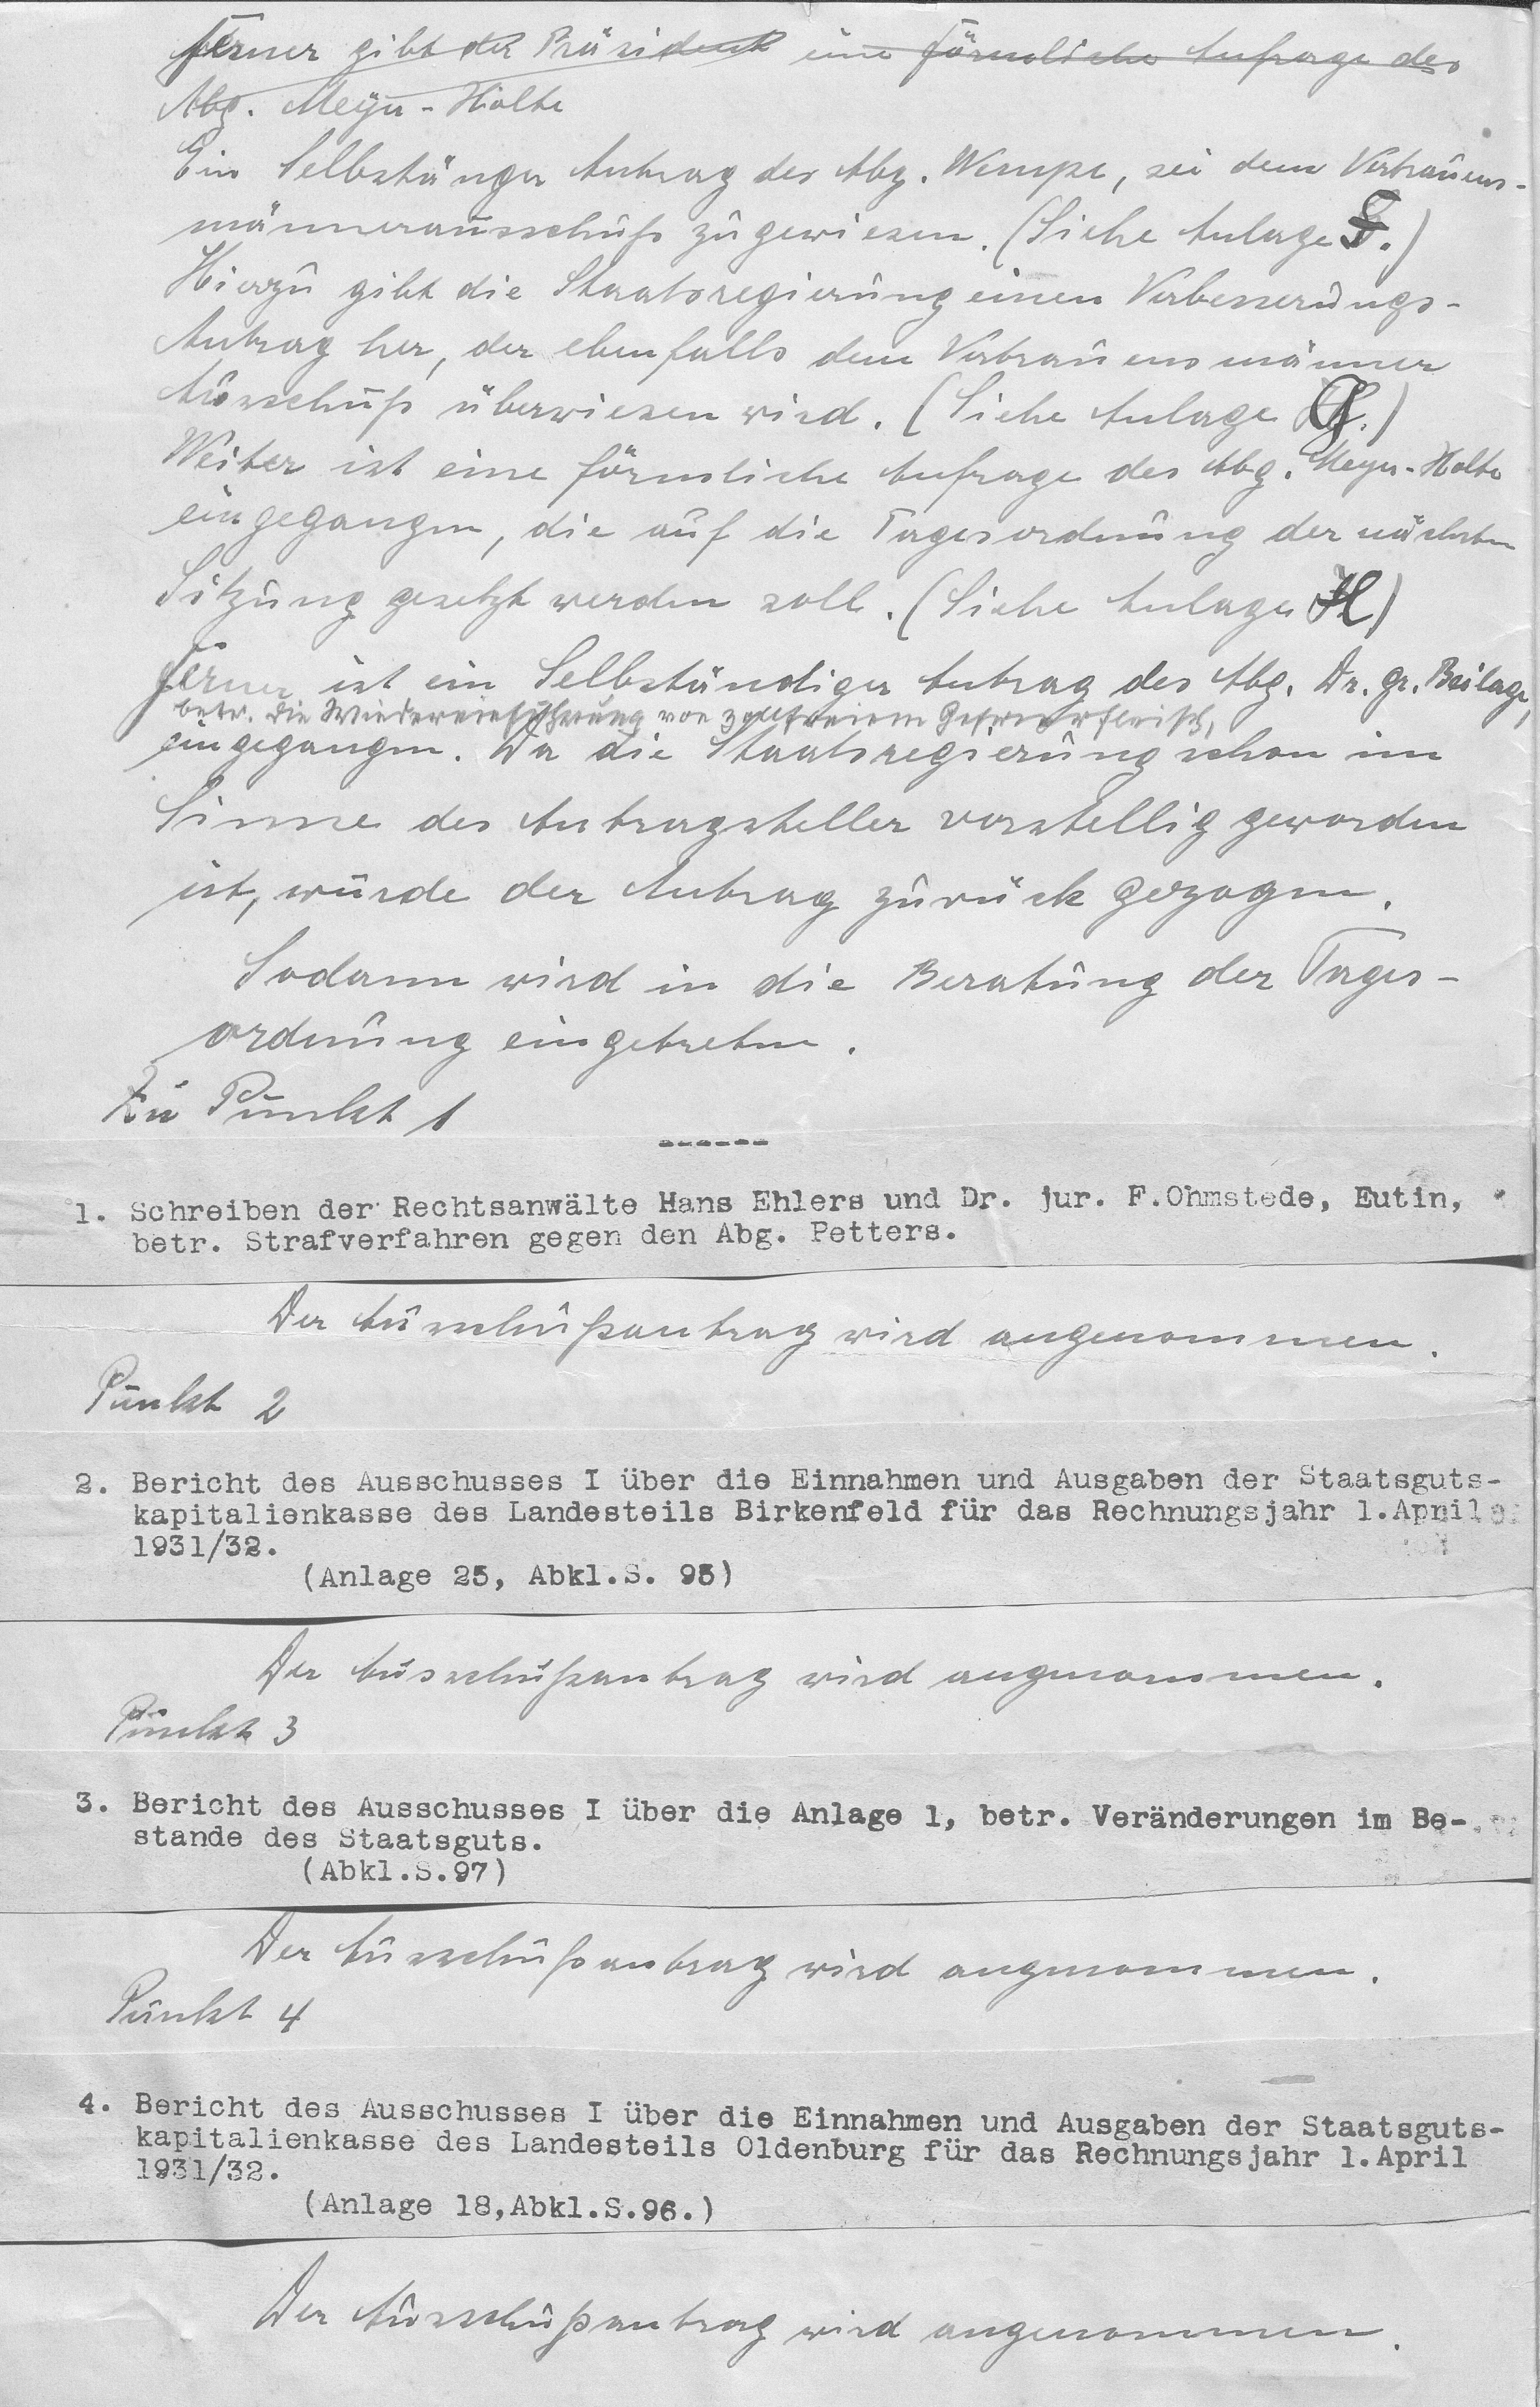 Ferner gibt der Präsident eine förmliche Anfrage des
Abg. Meyer-Holte
Ein Selbstänger Antrag des Abg. Wempe, sei dem Vertrauens-
männerausschuß zugewiesen. (Siehe Anlage F.)
Hierzu gibt die Staatsregierung einen Verbesserungs-
Antrag her, der ebenfalls dem Vertrauensmänner
Ausschuß überwiesen wird. (Siehe Anlage G.)
Weiter ist eine förmliche Anfrage des Abg. Meyer-Holte
eingegangen, die auf die Tagesordnung der nächsten
Sitzung gesetzt werden soll. (Siehe Anlage H)
Ferner ist ein Selbständiger Antrag des Abg. Dr. gr. Beilage,
betr. die Wiedereinführung von zollfreiem Gefrierfleisch,
eingegangen. Da die Staatsregierung schon im
Sinne des Antragsteller vorstellig geworden
ist, wurde der Antrag zurück gezogen.
Sodann wird in die Beratung der Tages-
ordnung eingetreten.
Zu Punkt 1
------
1. Schreiben der Rechtsanwälte Hans Ehlers und Dr. jur. F.Ohmstede, Eutin,
betr. Strafverfahren gegen den Abg. Petters.
Der Ausschußantrag wird angenommen.
Punkt 2
2. Bericht des Ausschusses I über die Einnahmen und Ausgaben der Staatsguts-
kapitalienkasse des Landesteils Birkenfeld für das Rechnungsjahr 1.April
1931/32.
(Anlage 25, Abkl.S. 95)
Der Ausschußantrag wird angenommen.
Punkt 3
3. Bericht des Ausschusses I über die Anlage 1, betr. Veränderungen im Be-
stande des Staatsguts.
(Abkl.S.97)
Der Ausschußantrag wird angenommen.
Punkt 4
4. Bericht des Ausschusses I über die Einnahmen und Ausgaben der Staatsguts-
kapitalienkasse des Landesteils Oldenburg für das Rechnungsjahr 1.April
1931/32.
(Anlage 18,Abkl.S.96.)
Der Ausschußantrag wird angenommen.